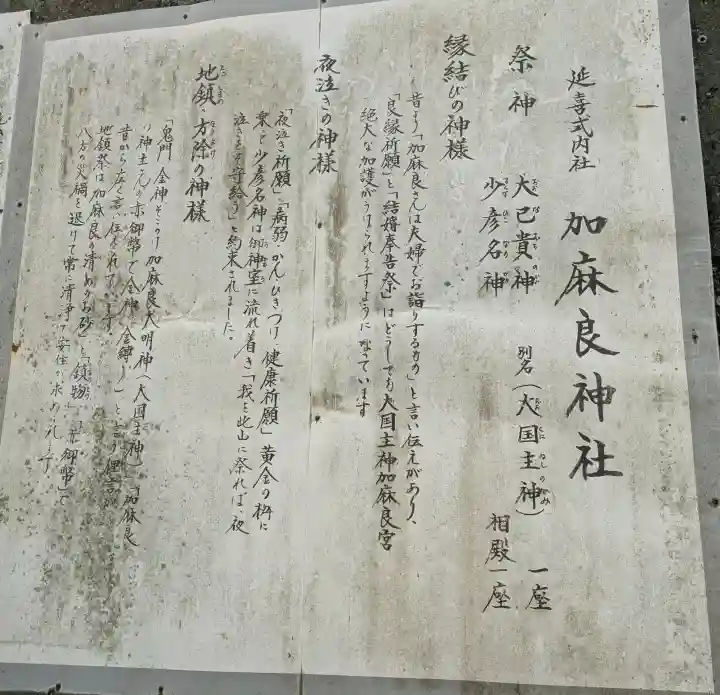 延喜式内社 加麻良神社
祭神 大己貴神 別名(大国主神) 一座
少彦名神 相殿一座
縁結びの神様
昔より「加麻良さんは夫婦でお詣りするもの」と言い伝えがあり、
「良縁祈願」と「結婚奉告祭」はどうしても大国主神加麻良宮
絶大な加護がうけられますようになっています
夜泣きの神様
「夜泣き祈願」「病弱・かんひきつけ・健康祈願」黄金の桝に
乗って少彦名神は御神室に流れ着き「我を此山に祭れば、夜
泣きを守給う」と約束されました。
地鎮・方除の神様
「鬼門・金神をこわけ加麻良大明神(大国主神)」「加麻良
の神土んの赤御幣で金神を金縛り」と言う俚言が
昔から広く言い伝えれています。
地鎮祭は加麻良の清めのお砂」と「鎮物」「赤御幣」で
八方の災禍を退けて常に清浄で安住が求められます